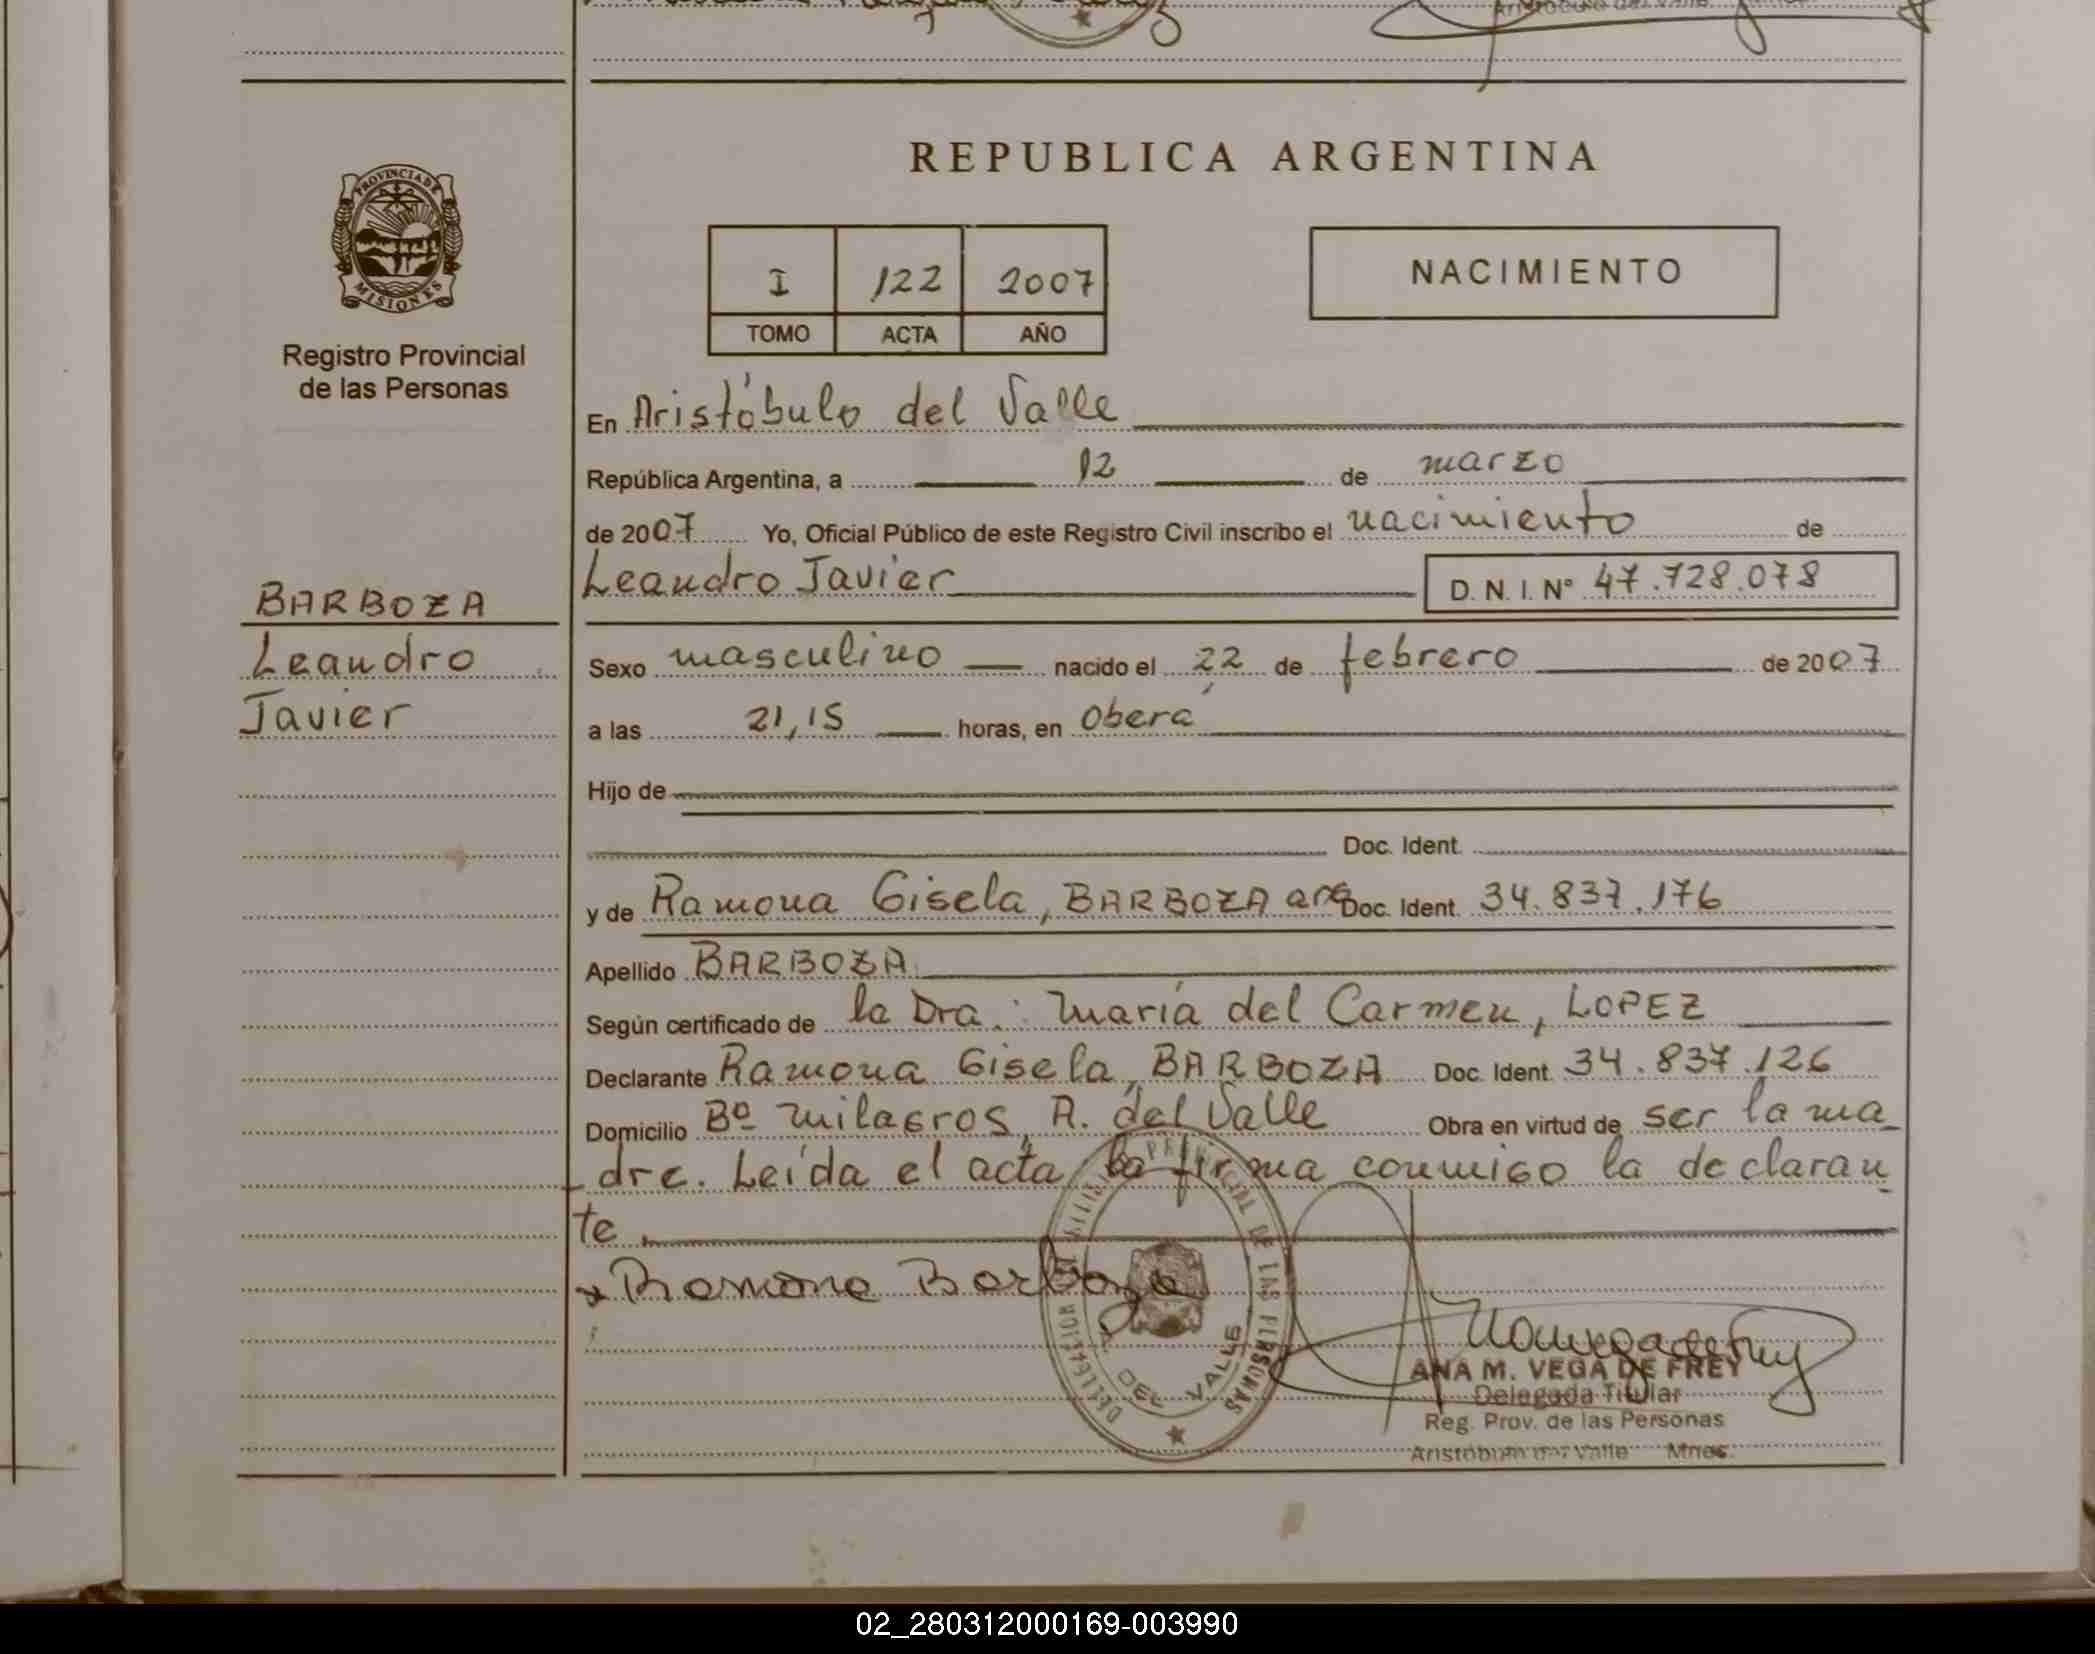 REPUBLICA ARGENTINA
PROVINCIA DE
MISIONES
Registro Provincial
de las Personas
I 122 2007
TOMO ACTA AÑO
NACIMIENTO
En Aristóbulo del Valle
República Argentina, a 12 de marzo
de 2007 Yo, Oficial Público de este Registro Civil inscribo el nacimiento de
Leandro Javier D. N. I. N° 47.728.078
BARBOZA
Leandro
Javier
Sexo masculino nacido el 22 de febrero de 2007
a las 21,15 horas, en Oberá
Hijo de
Doc. Ident.
y de Ramona Gisela, BARBOZA arg Doc. Ident. 34.837.176
Apellido BARBOZA
Según certificado de la Dra.: María del Carmen, LOPEZ
Declarante Ramona Gisela, BARBOZA Doc. Ident. 34.837.126
Domicilio Bº Milagros, A. del Valle Obra en virtud de ser la ma_
_dre. Leída el acta la firma conmigo la declaran_
te.
Ramona Barboza
DELEGACION PROVINCIAL DE LAS PERSONAS
A. DEL VALLE
ANA M. VEGA DE FREY
Delegada Titular
Reg. Prov. de las Personas
Aristóbulo del Valle Mnes.
02_280312000169-003990